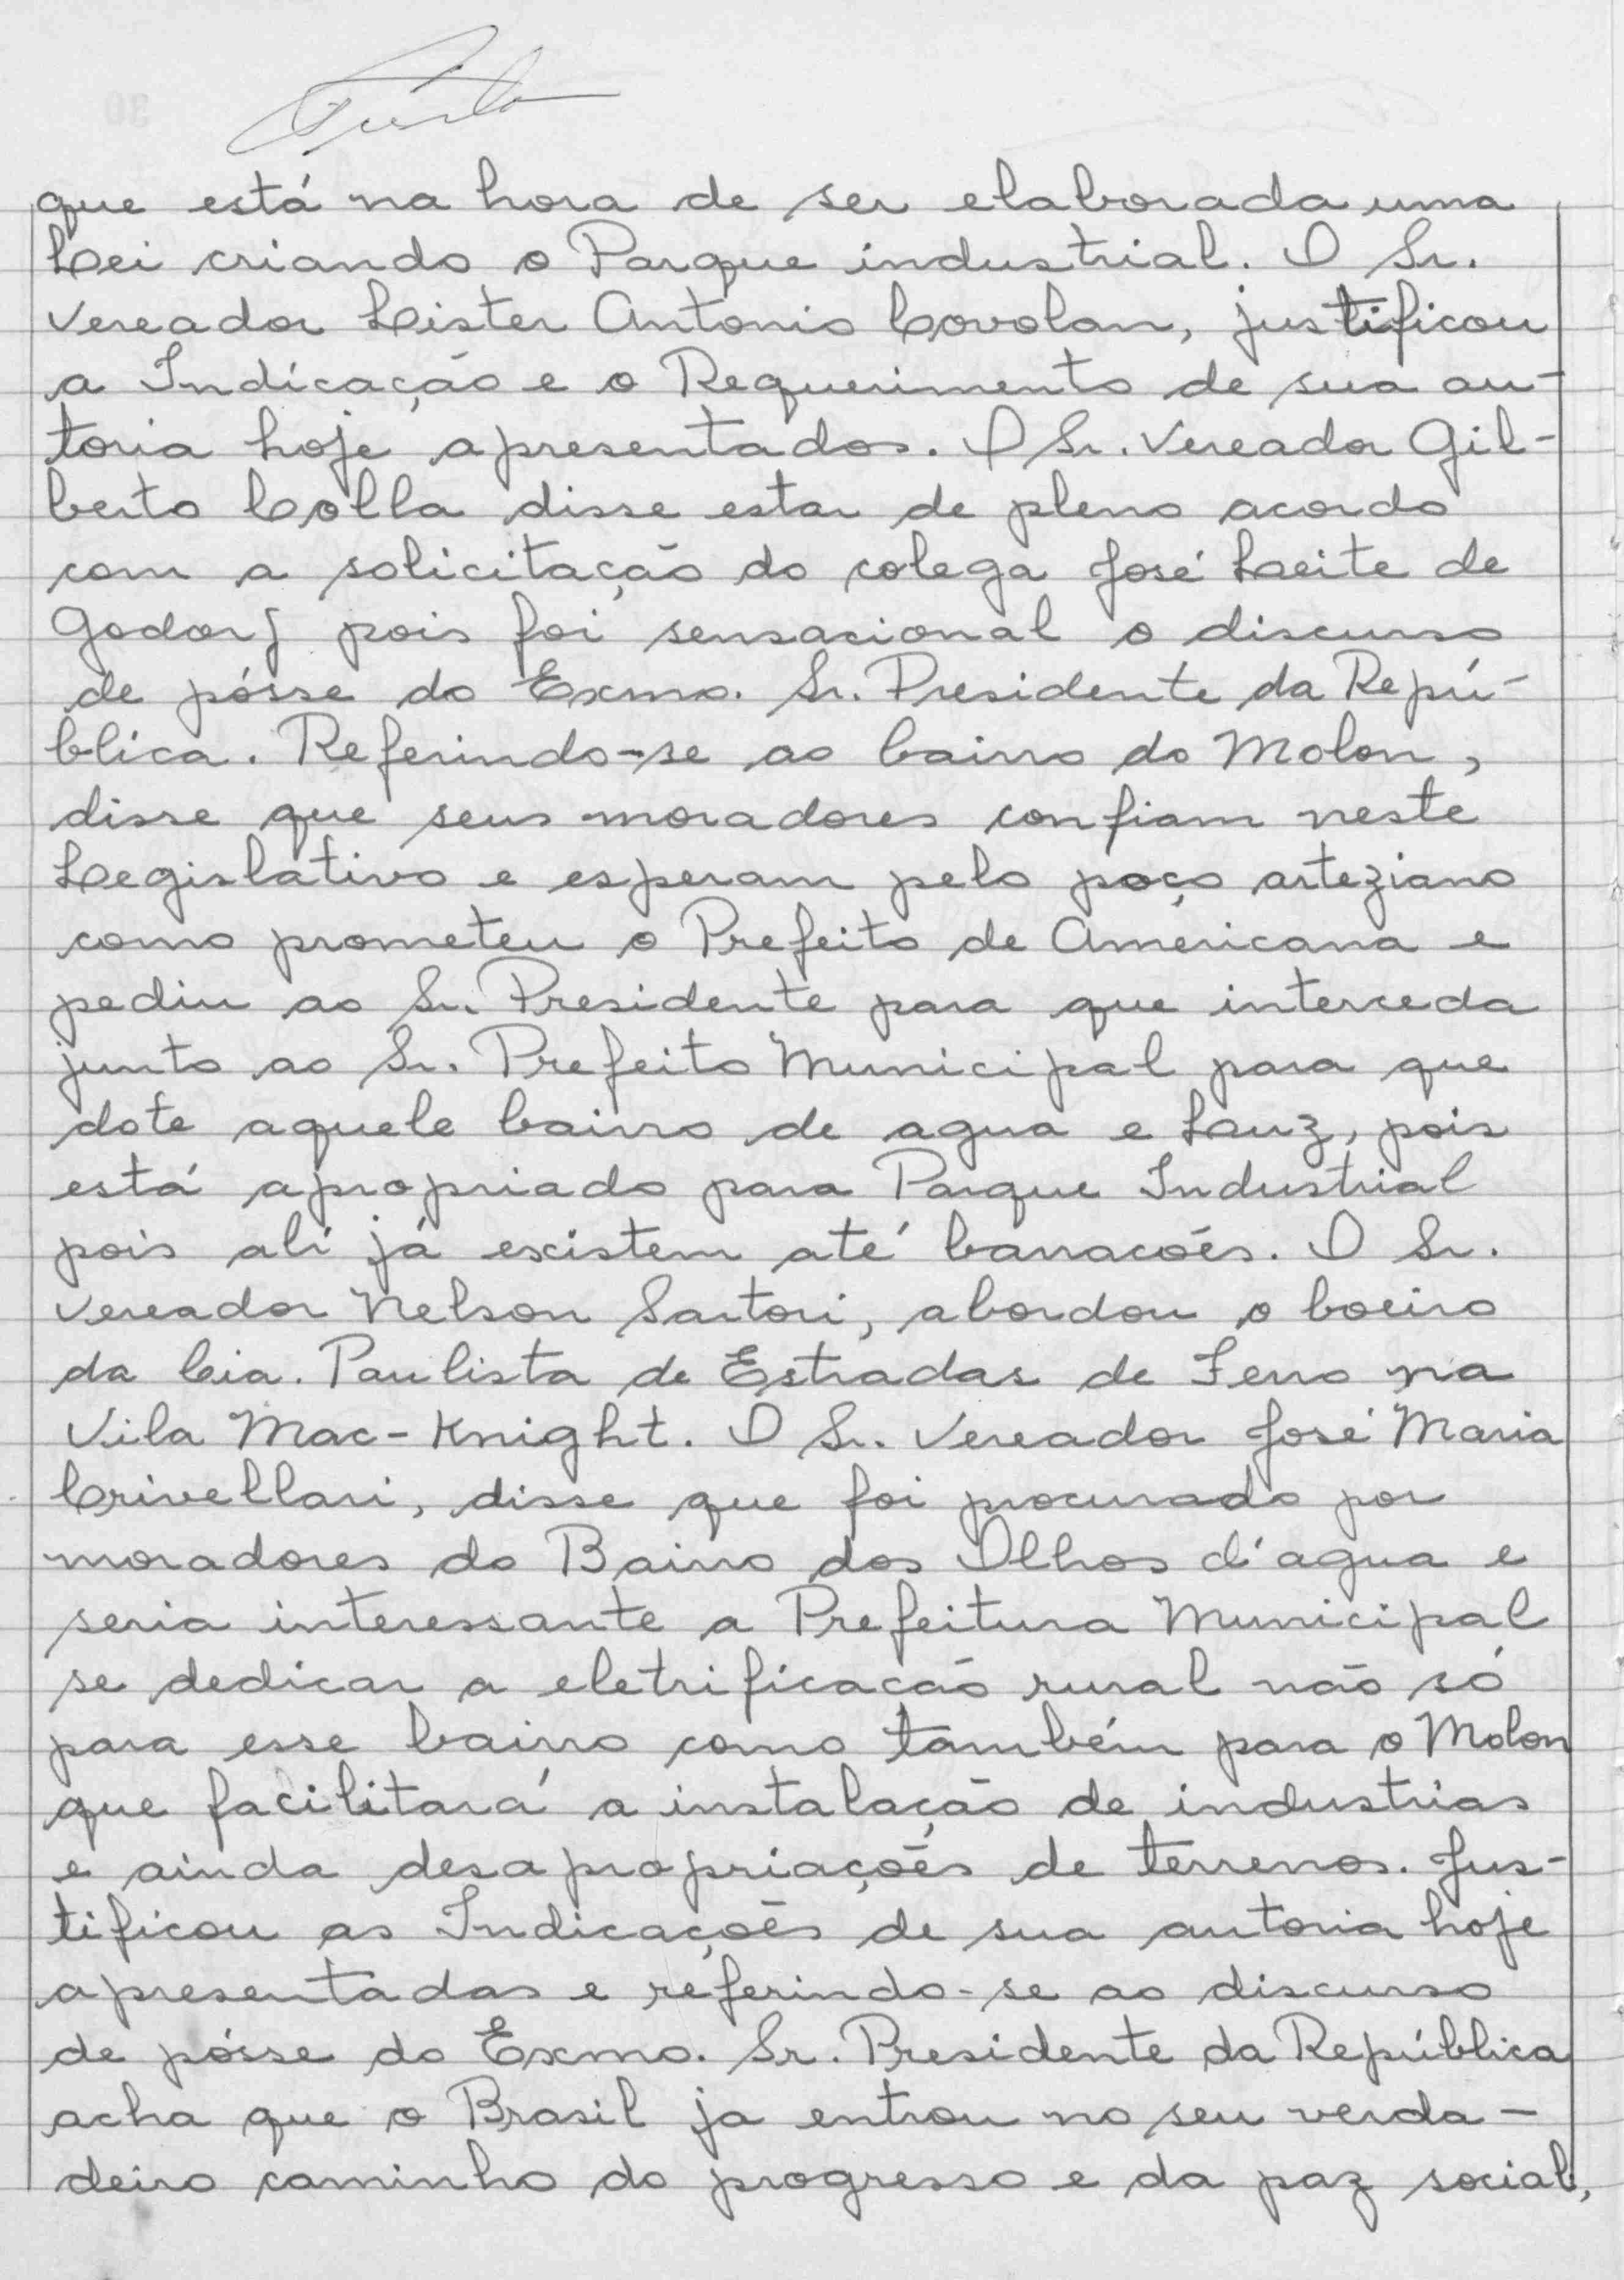 que está na hora de ser elaborada uma
Lei criando o Parque industrial. O Sr.
Vereador Lister Antonio Covolan, justificou
a Indicação e o Requerimento de sua au-
toria hoje apresentados. O Sr. Vereador Gil-
berto Colla disse estar de pleno acordo
com a solicitação do colega José Leite de
Godoy pois foi sensacional o discurso
de pósse do Exmo. Sr. Presidente da Repú-
blica. Referindo-se ao bairro do Molon,
disse que seus moradores confiam neste
Legislativo e esperam pelo poço arteziano
como prometeu o Prefeito de Americana e
pediu ao Sr. Presidente para que interceda
junto ao Sr. Prefeito Municipal para que
dote aquele bairro de agua e Luz, pois
está apropriado para Parque Industrial
pois ali já existem até barracões. O Sr.
Vereador Nelson Sartori, abordou o boeiro
da Cia. Paulista de Estradas de Ferro na
Vila Mac-Knight. O Sr. Vereador José Maria
Crivellari, disse que foi procurado por
moradores do Bairro dos Olhos d'agua e
seria interessante a Prefeitura Municipal
se dedicar a eletrificacão rural não só
para esse bairro como também para o Molon
que facilitará a instalação de industrias
e ainda desapropriações de terrenos. Jus-
tificou as Indicações de sua autoria hoje
apresentadas e referindo-se ao discurso
de pósse do Exmo. Sr. Presidente da República
acha que o Brasil ja entrou no seu verda-
deiro caminho do progresso e da paz social,